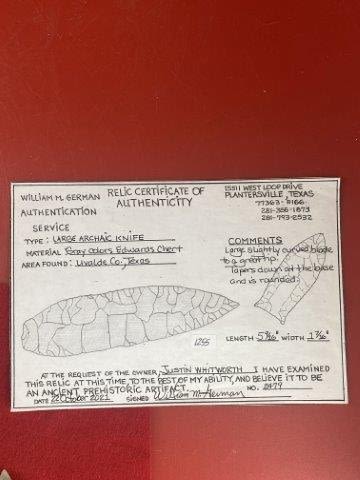 WILLIAM M. GERMAN
AUTHENTICATION
SERVICE
RELIC CERTIFICATE OF
AUTHENTICITY
15511 WEST LOOP DRIVE
PLANTERSVILLE, TEXAS
77363-#166
281-356-1873
281-793-2532
TYPE: LARGE ARCHAIC KNIFE
MATERIAL Gray Colors Edwards Chert
AREA FOUND: Uvalde Co., Texas
COMMENTS
Large slightly curved blade
to a great tip.
Tapers down at the base
and is rounded.
1255
LENGTH 5 9/16" WIDTH 1 7/16"
AT THE REQUEST OF THE OWNER, JUSTIN WHITWORTH I HAVE EXAMINED
THIS RELIC AT THIS TIME, TO THE BEST OF MY ABILITY, AND BELIEVE IT TO BE
AN ANCIENT, PREHISTORIC ARTIFACT.
DATE 22 October 2021 SIGNED William M. German NO.